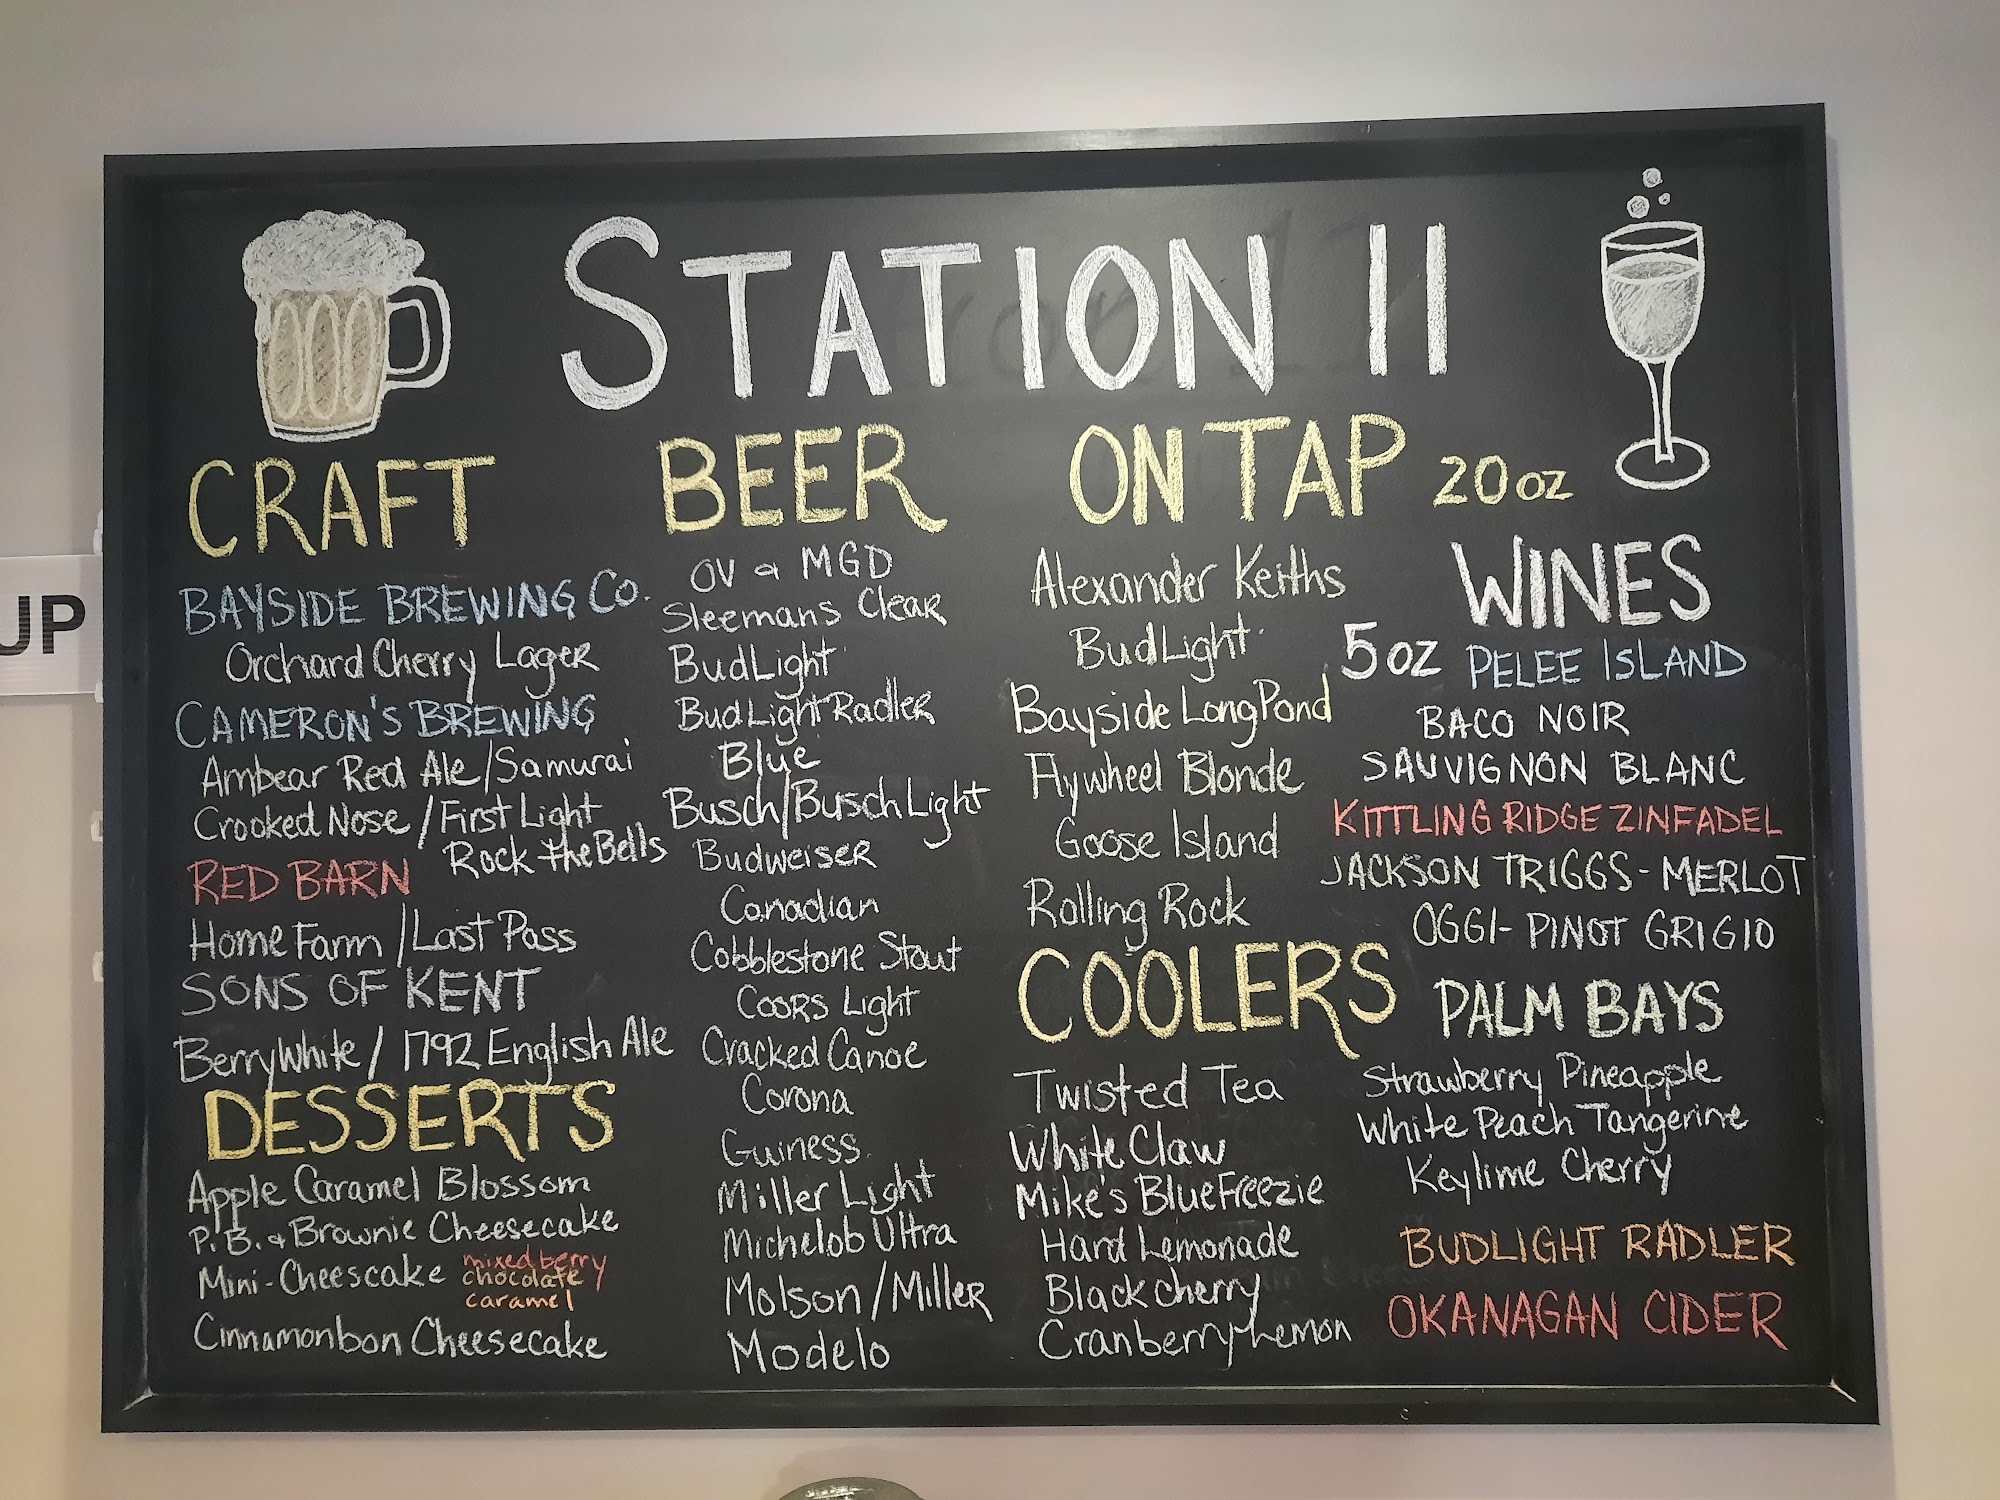 UP
STATION 11
CRAFT
BAYSIDE BREWING CO.
Orchard Cherry Lager
CAMERON'S BREWING
Ambear Red Ale/Samurai
Crooked Nose/First Light
Rock the Bells
RED BARN
Home Farm/Last Pass
SONS OF KENT
Berry White/1792 English Ale
DESSERTS
Apple Caramel Blossom
P.B. & Brownie Cheesecake
Mini-Cheescake mixed berry
chocolate
caramel
Cinnamonbon Cheesecake
BEER
OV & MGD
Sleemans Clear
BudLight
BudLight Radler
Blue
Busch/Busch Light
Budweiser
Canadian
Cobblestone Stout
Coors Light
Cracked Canoe
Corona
Guiness
Miller Light
Michelob Ultra
Molson/Miller
Modelo
ON TAP 20oz
Alexander Keiths
BudLight
Bayside Long Pond
Flywheel Blonde
Goose Island
Rolling Rock
COOLERS
Twisted Tea
White Claw
Mike's Blue Freezie
Hard Lemonade
Black cherry
Cranberry Lemon
WINES
5oz PELEE ISLAND
BACO NOIR
SAUVIGNON BLANC
KITTLING RIDGE ZINFADEL
JACKSON TRIGGS - MERLOT
OGGI - PINOT GRIGIO
PALM BAYS
Strawberry Pineapple
White Peach Tangerine
Keylime Cherry
BUDLIGHT RADLER
OKANAGAN CIDER